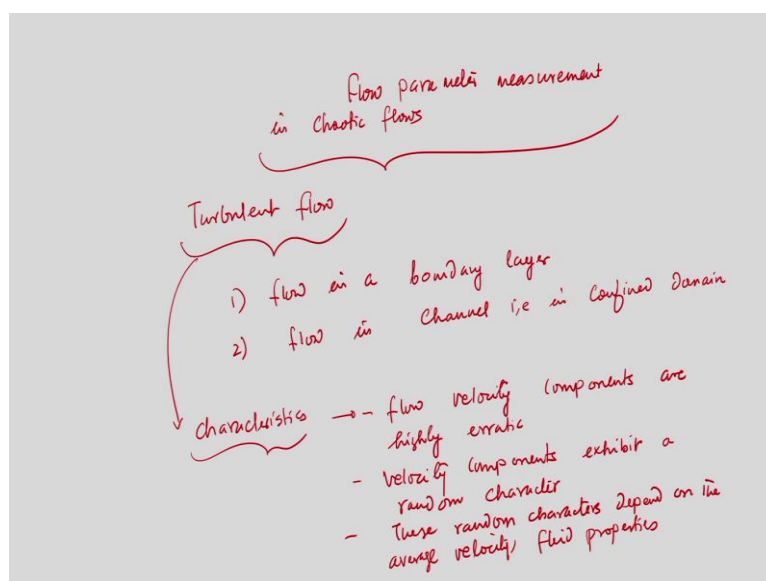 Flow parameter measurement
in Chaotic flows
Turbulent flow
1) flow in a boundary layer
2) flow in Channel i,e in Confined Domain
Characteristics → - flow velocity Components are
highly erratic
- velocity Components exhibit a
random character
- These random characters depend on the
average velocity, fluid properties